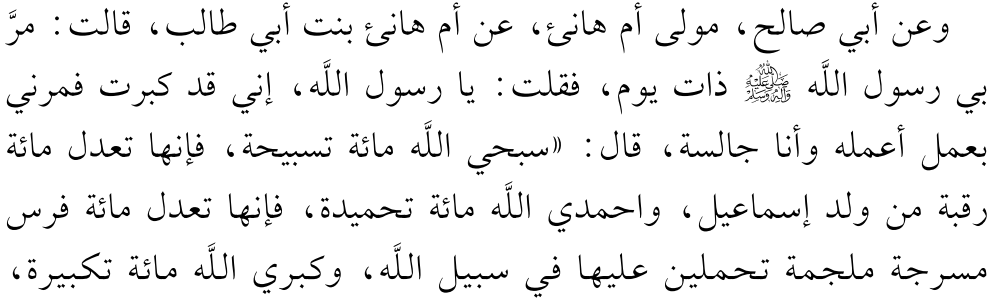 وعن أبي صالح، مولى أم هانئ، عن أم هانئ بنت أبي طالب، قالت: مرَّ
بي رسول اللَّه ﷺ ذات يوم، فقلت: يا رسول اللَّه، إني قد كبرت فمرني
بعمل أعمله وأنا جالسة، قال: «سبحي اللَّه مائة تسبيحة، فإنها تعدل مائة
رقبة من ولد إسماعيل، واحمدي اللَّه مائة تحميدة، فإنها تعدل مائة فرس
مسرجة ملجمة تحملين عليها في سبيل اللَّه، وكبري اللَّه مائة تكبيرة،